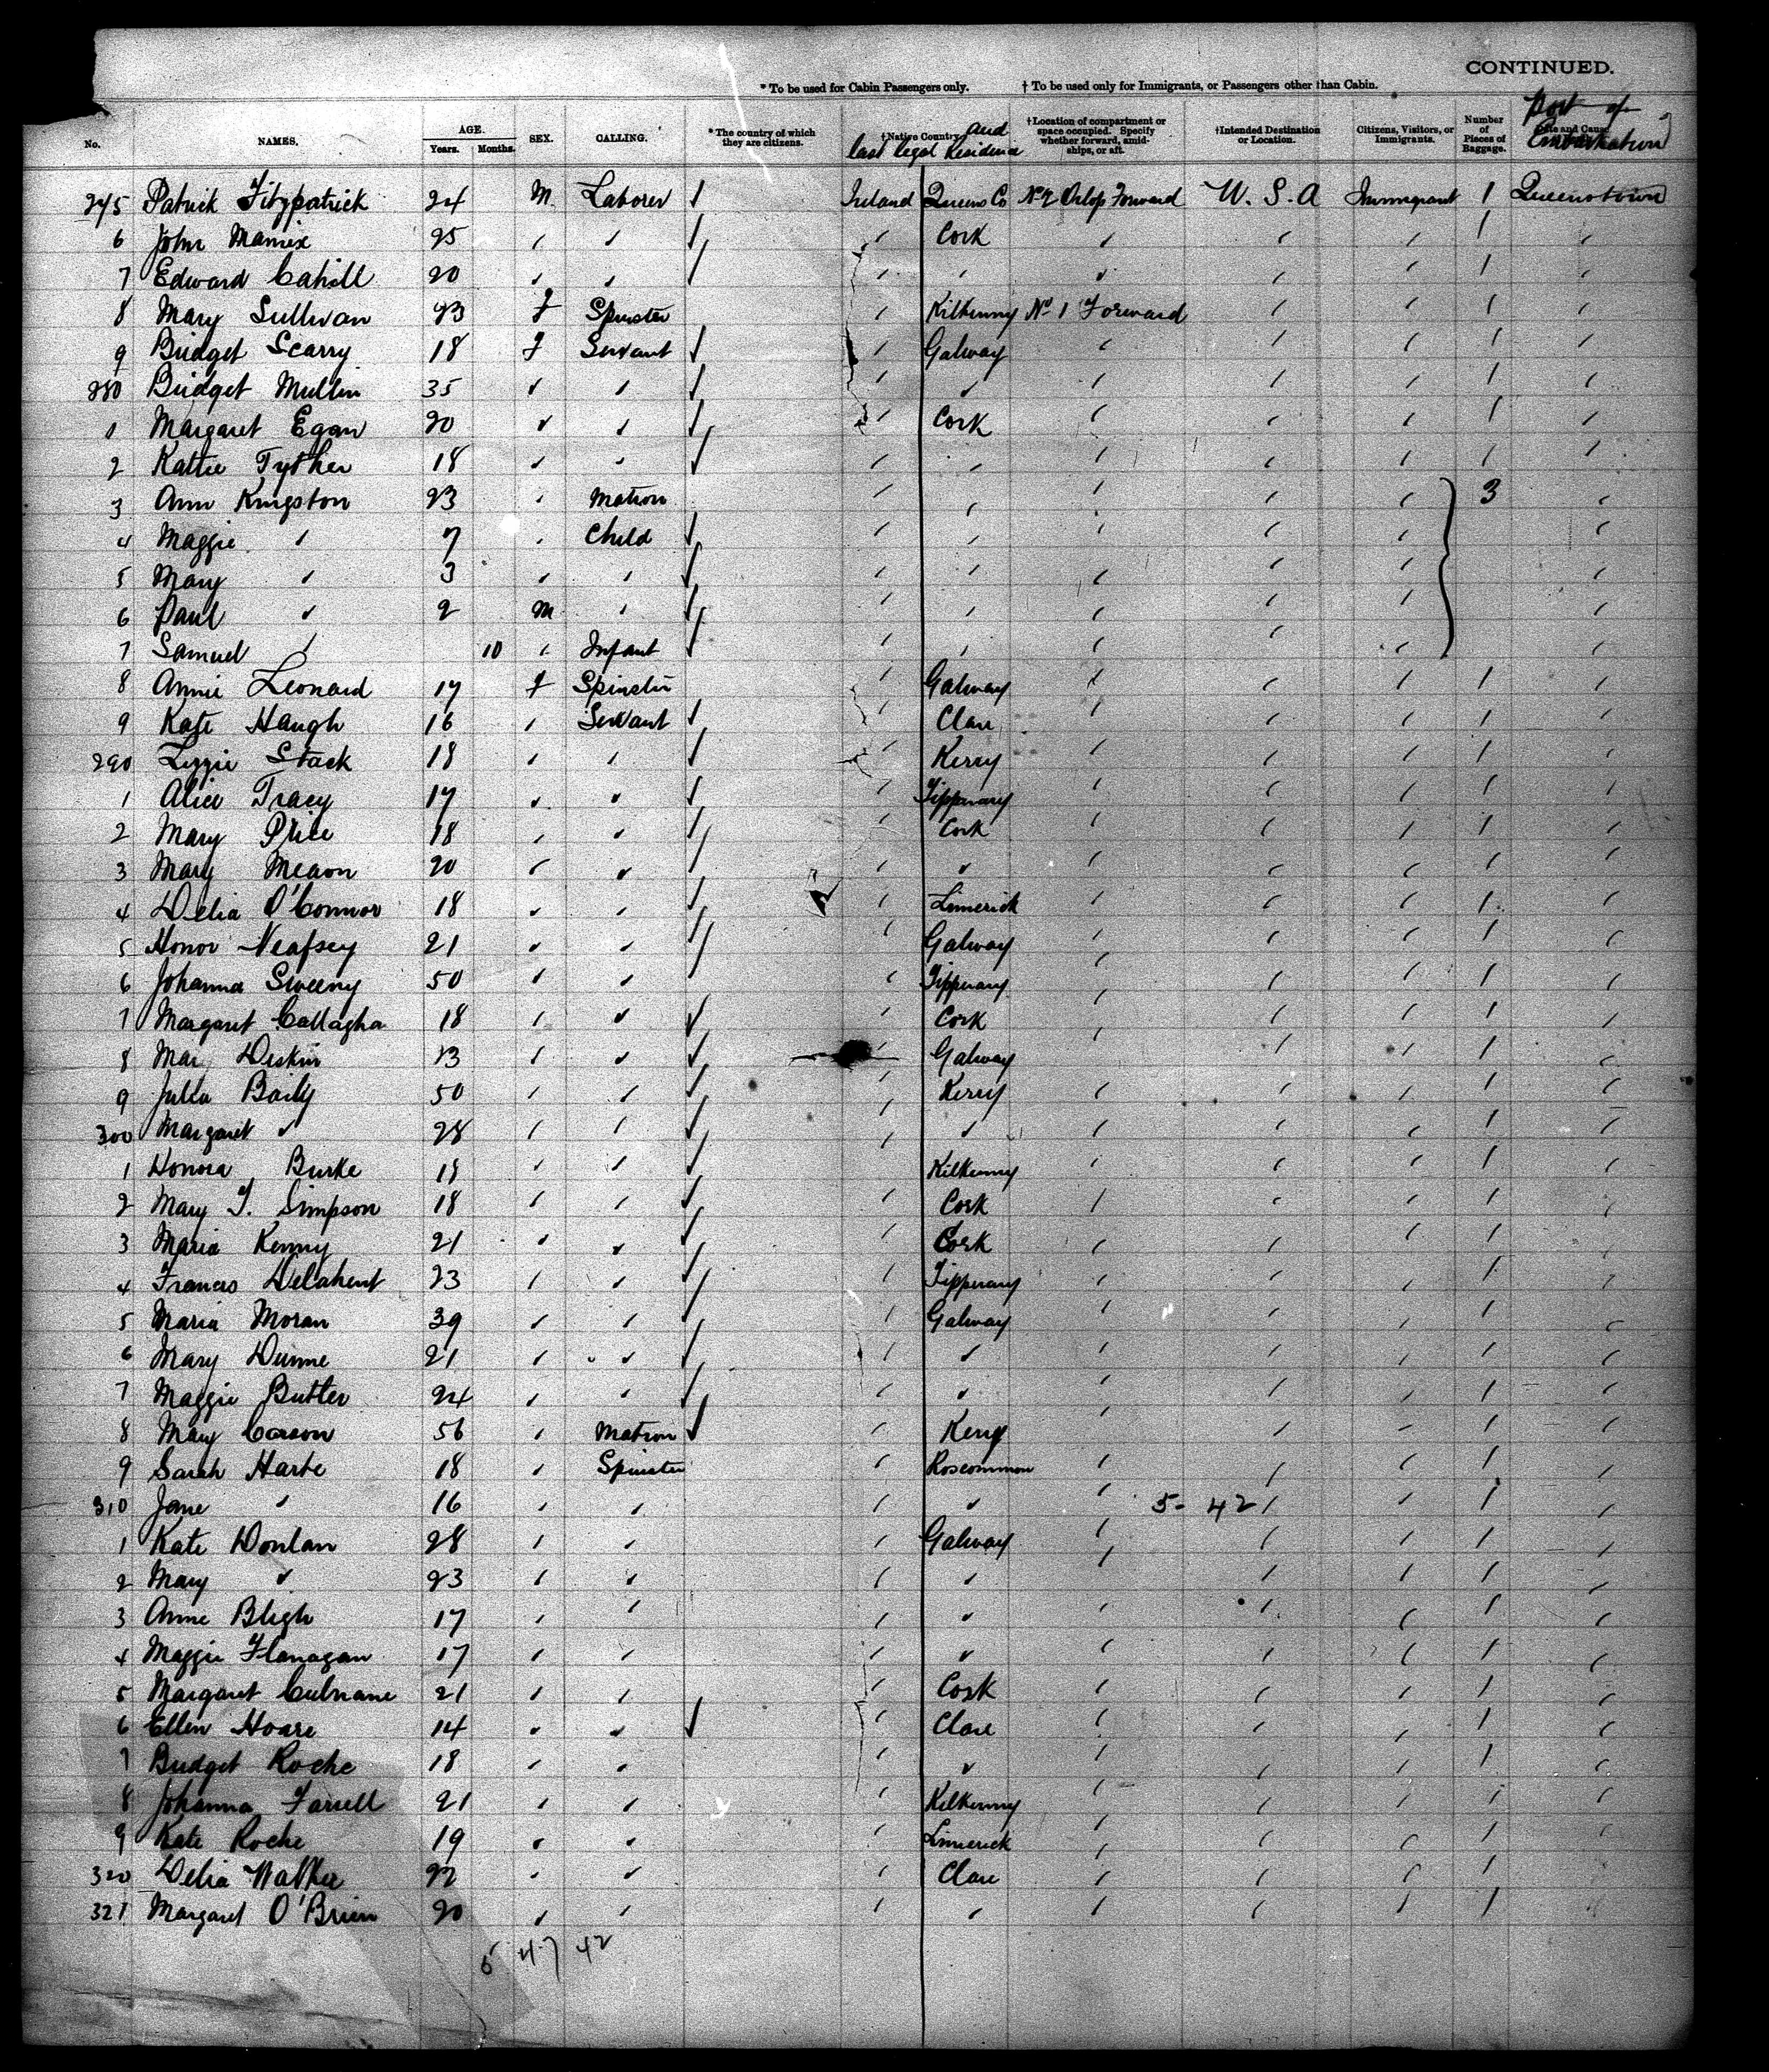 CONTINUED.
* To be used for Cabin Passengers only. † To be used only for Immigrants, or Passengers other than Cabin.
No. NAMES. AGE. Years. Months. SEX. CALLING. * The country of which they are citizens. † Native Country and last legal Residence † Location of compartment or space occupied. Specify whether forward, amidships, or aft. † Intended Destination or Location. Citizens, Visitors, or Immigrants. Number of Pieces of Baggage. Port of Embarkation
275 Patrick Fitzpatrick 24 M Laborer Ireland Queens Co No 2 Orlop Forward U.S.A Immigrant 1 Queenstown
6 John 25 " " " Cork " " " 1 "
7 Edward Cahill 20 " " " " " " " 1 "
8 Mary Sullivan 23 F Spinster " Kilkenny No 1 Forward " " 1 "
9 Bridget Scarry 18 F Servant " Galway " " " 1 "
280 Bridget Mullin 35 " " " " " " " 1 "
1 Margaret Egan 20 " " " Cork " " " 1 "
2 Kattie 18 " " " " " " " 1 "
3 Ann Kingston 23 " Matron " " " " " 3 "
4 Maggie " 7 " Child " " " " " "
5 Mary " 3 " " " " " " " "
6 Paul " 2 M " " " " " " "
7 Samuel " 10 " Infant " " " " " "
8 Annie Leonard 17 F Spinster " Galway " " " 1 "
9 Kate Haugh 16 " Servant " Clare " " " 1 "
290 Lizzie Stack 18 " " " Kerry " " " 1 "
1 Alice Tracy 17 " " " Tipperary " " " 1 "
2 Mary Price 18 " " " Cork " " " 1 "
3 Mary Meaon 20 " " " " " " " 1 "
4 Delia O'Connor 18 " " " Limerick " " " 1 "
5 Honor Neafsey 21 " " " Galway " " " 1 "
6 Johanna Sweeny 50 " " " Tipperary " " " 1 "
7 Margaret Callagha 18 " " " Cork " " " 1 "
8 Mary Diskin 23 " " " Galway " " " 1 "
9 Julia Baily 50 " " " Kerry " " " 1 "
300 Margaret " 28 " " " " " " " 1 "
1 Honora Burke 18 " " " Kilkenny " " " 1 "
2 Mary T. Simpson 18 " " " Cork " " " 1 "
3 Maria Kenny 21 " " " Cork " " " 1 "
4 Frances Delahent 23 " " " Tipperary " " " 1 "
5 Maria Moran 39 " " " Galway " " " 1 "
6 Mary Dunne 21 " " " " " " " 1 "
7 Maggie Butler 24 " " " " " " " 1 "
8 Mary Carson 56 " Matron " Kerry " " " 1 "
9 Sarah Harte 18 " Spinster " Roscommon " " " 1 "
310 Jane " 16 " " " " " 5- 42 " " 1 "
1 Kate Donlan 28 " " " Galway " " " 1 "
2 Mary " 23 " " " " " " " 1 "
3 Anne Bligh 17 " " " " " " " 1 "
4 Maggie Flanagan 17 " " " " " " " 1 "
5 Margaret Culnane 21 " " " Cork " " " 1 "
6 Ellen Hoare 14 " " " Clare " " " 1 "
7 Bridget Roche 18 " " " " " " " 1 "
8 Johanna Farrell 21 " " " Kilkenny " " " 1 "
9 Kate Roche 19 " " " Limerick " " " 1 "
320 Delia Walker 22 " " " Clare " " " 1 "
321 Margaret O'Brien 20 " " " " " " " 1
5 47 42